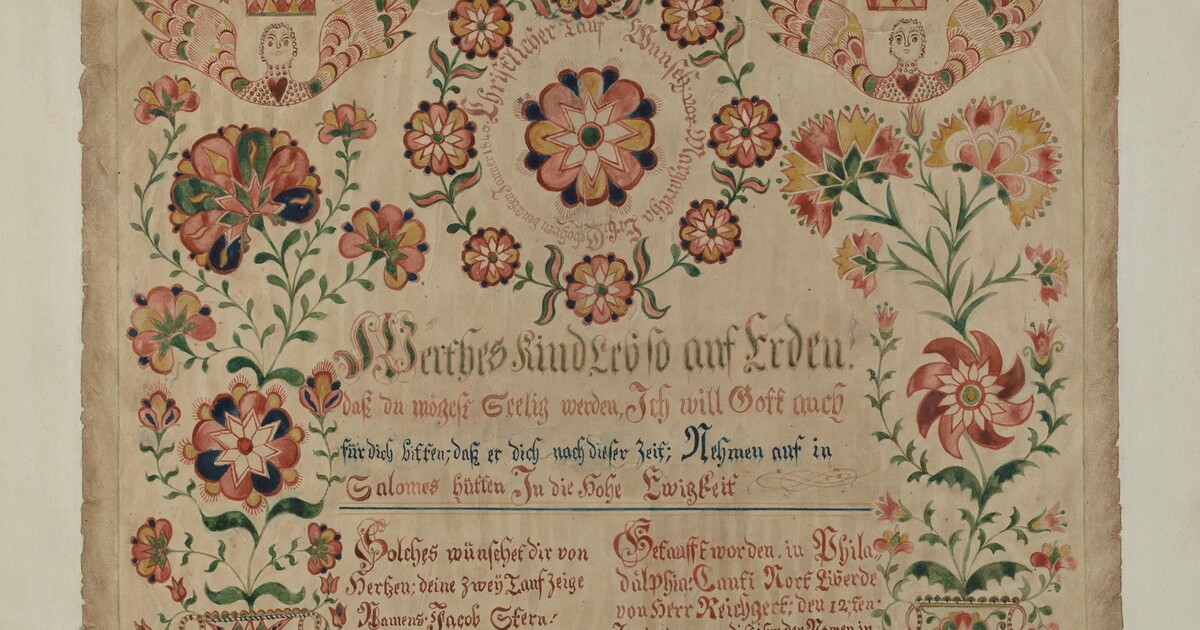 Christlicher Tauf Wunsch: vor Margaretha
Gebohren den Jamer 1840
Werthes Kind Leb so auf Erden!
daß du mögest Seelig werden, Ich will Gott auch
für dich bitten; daß er dich nach dieser Zeit; Nehmen auf in
Salomes hütten In die Hohe Ewigkeit
Solches wünschet dir von
Hertzen; deine zwey Tauf Zeige
Namens: Jacob Stern:
Getaufft worden, in Phila,,
dülphia: Caunti Nort Liberde
von Herr Reichgert; den 12,ten